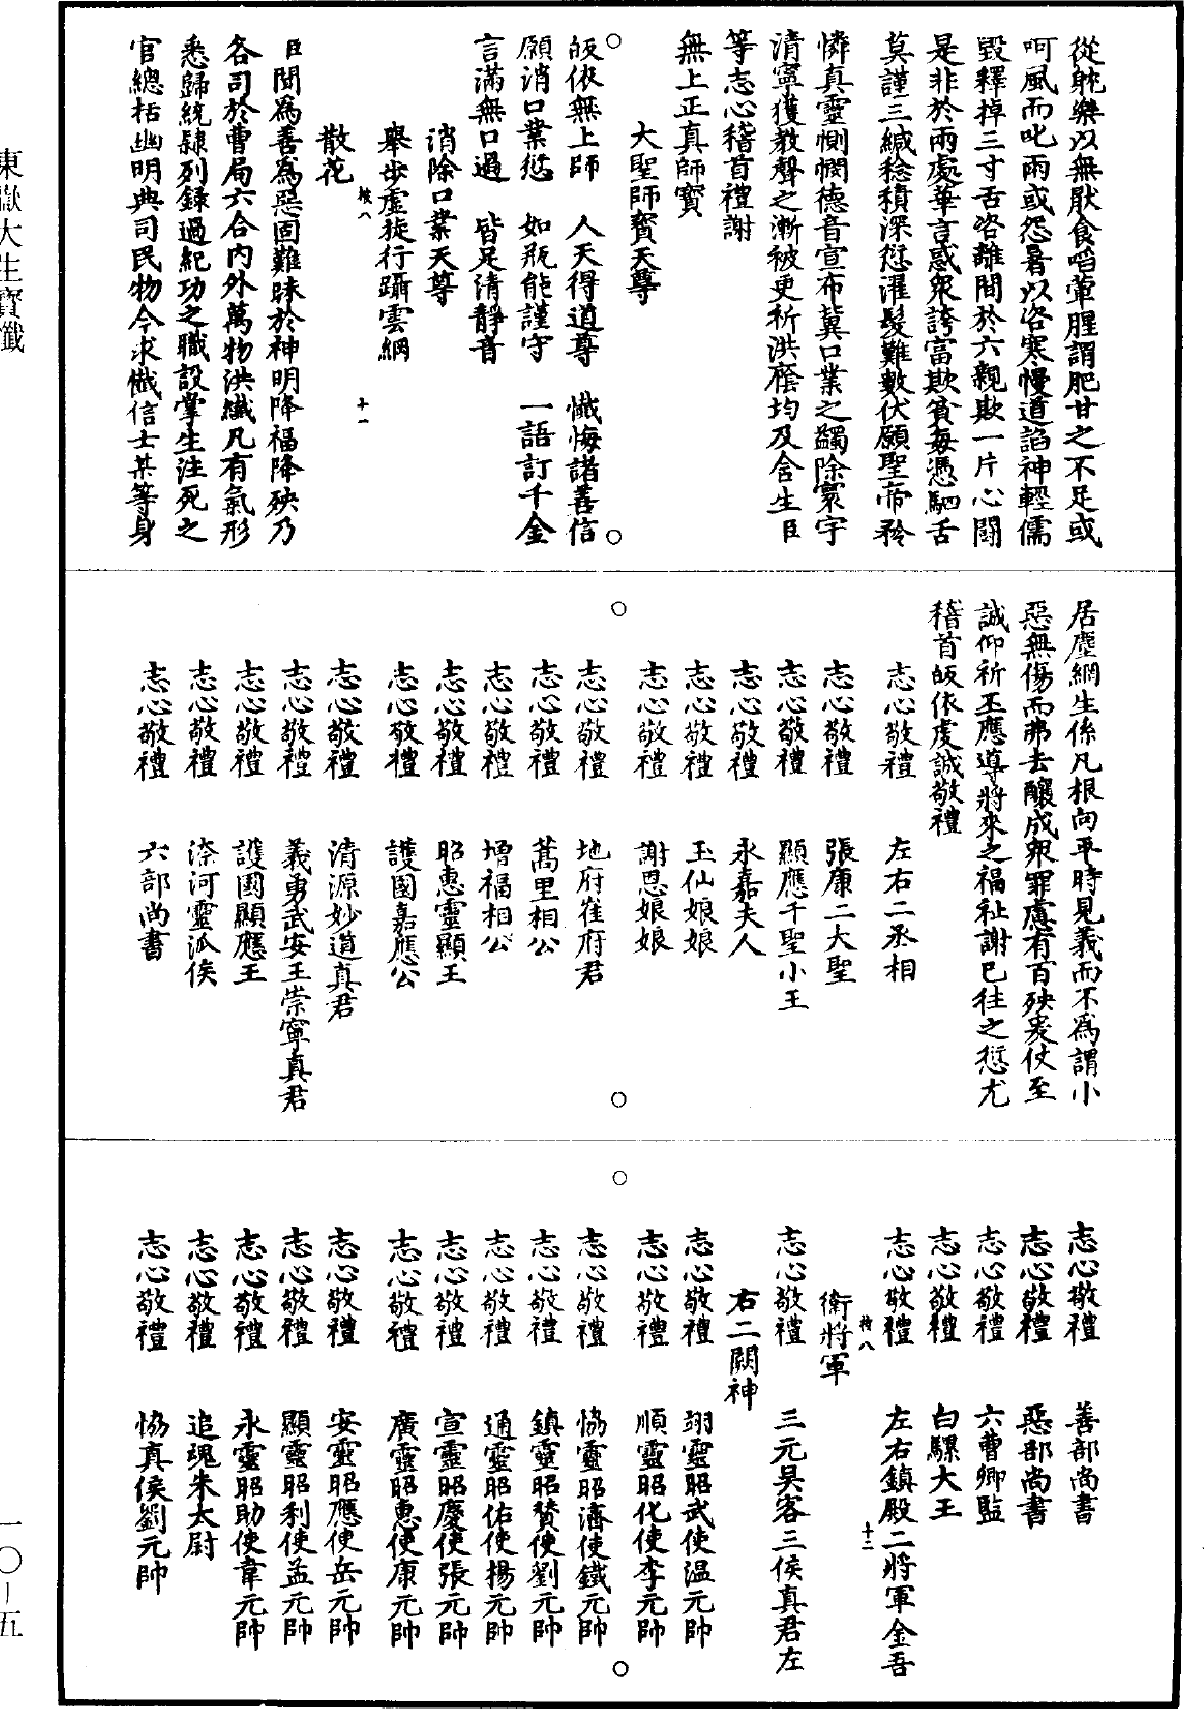 從躭樂以無猒食啗葷腥謂肥甘之不足或
呵風而叱雨或怨暑以咨寒慢道謟神輕儒
毀釋掉三寸舌咨離間於六親欺一片心鬪
是非於兩處華言惑衆誇富欺貧每憑駟舌
莫謹三緘稔積深愆濯髮難數伏願聖帝矜
憐真靈惻憫德音宣布冀口業之蠲除寰宇
清寧獲教聲之漸被更祈洪廕均及含生臣
等志心稽首禮謝
無上正真師寳
大聖師寳天尊
皈依無上師 人天得道尊 懺悔諸善信
願消口業愆 如瓶能謹守 一語訂千金
言滿無口過 皆足清靜音
消除口業天尊
舉步虛旋行躡雲綱
散花
被八 十一
臣聞為善為惡固難昧於神明降福降殃乃
各司於曹局六合內外萬物洪纖凡有氣形
悉歸統隸列録過紀功之職設掌生注死之
官總括幽明典司民物今求懺信士某等身
居塵網生係凡根向平時見義而不為謂小
惡無傷而弗去釀成衆罪慮有百殃爰仗至
誠仰祈丕應導將來之福祉謝已往之愆尤
稽首皈依虔誠敬禮
志心敬禮 左右二丞相
志心敬禮 張康二大聖
志心敬禮 顯應千聖小王
志心敬禮 永嘉夫人
志心敬禮 玉仙娘娘
志心敬禮 謝恩娘娘
志心敬禮 地府崔府君
志心敬禮 蒿里相公
志心敬禮 增福相公
志心敬禮 昭惠靈顯王
志心敬禮 護國嘉應公
志心敬禮 清源妙道真君
志心敬禮 義勇武安王崇寧真君
志心敬禮 護國顯應王
志心敬禮 㮈河靈派侯
志心敬禮 六部尚書
志心敬禮 善部尚書
志心敬禮 惡部尚書
志心敬禮 六曹卿監
志心敬禮 白騾大王
志心敬禮 左右鎮殿二將軍金吾
被八 十二
衛將軍
志心敬禮 三元吴客三侯真君左
右二闕神
志心敬禮 翊靈昭武使温元帥
志心敬禮 順靈昭化使李元帥
志心敬禮 協靈昭濟使鐵元帥
志心敬禮 鎮靈昭賛使劉元帥
志心敬禮 通靈昭佑使楊元帥
志心敬禮 宣靈昭慶使張元帥
志心敬禮 廣靈昭惠使康元帥
志心敬禮 安靈昭應使岳元帥
志心敬禮 顯靈昭利使孟元帥
志心敬禮 永靈昭助使韋元帥
志心敬禮 追魂朱太尉
志心敬禮 協真侯劉元帥
東嶽大生寳懺
一〇—五